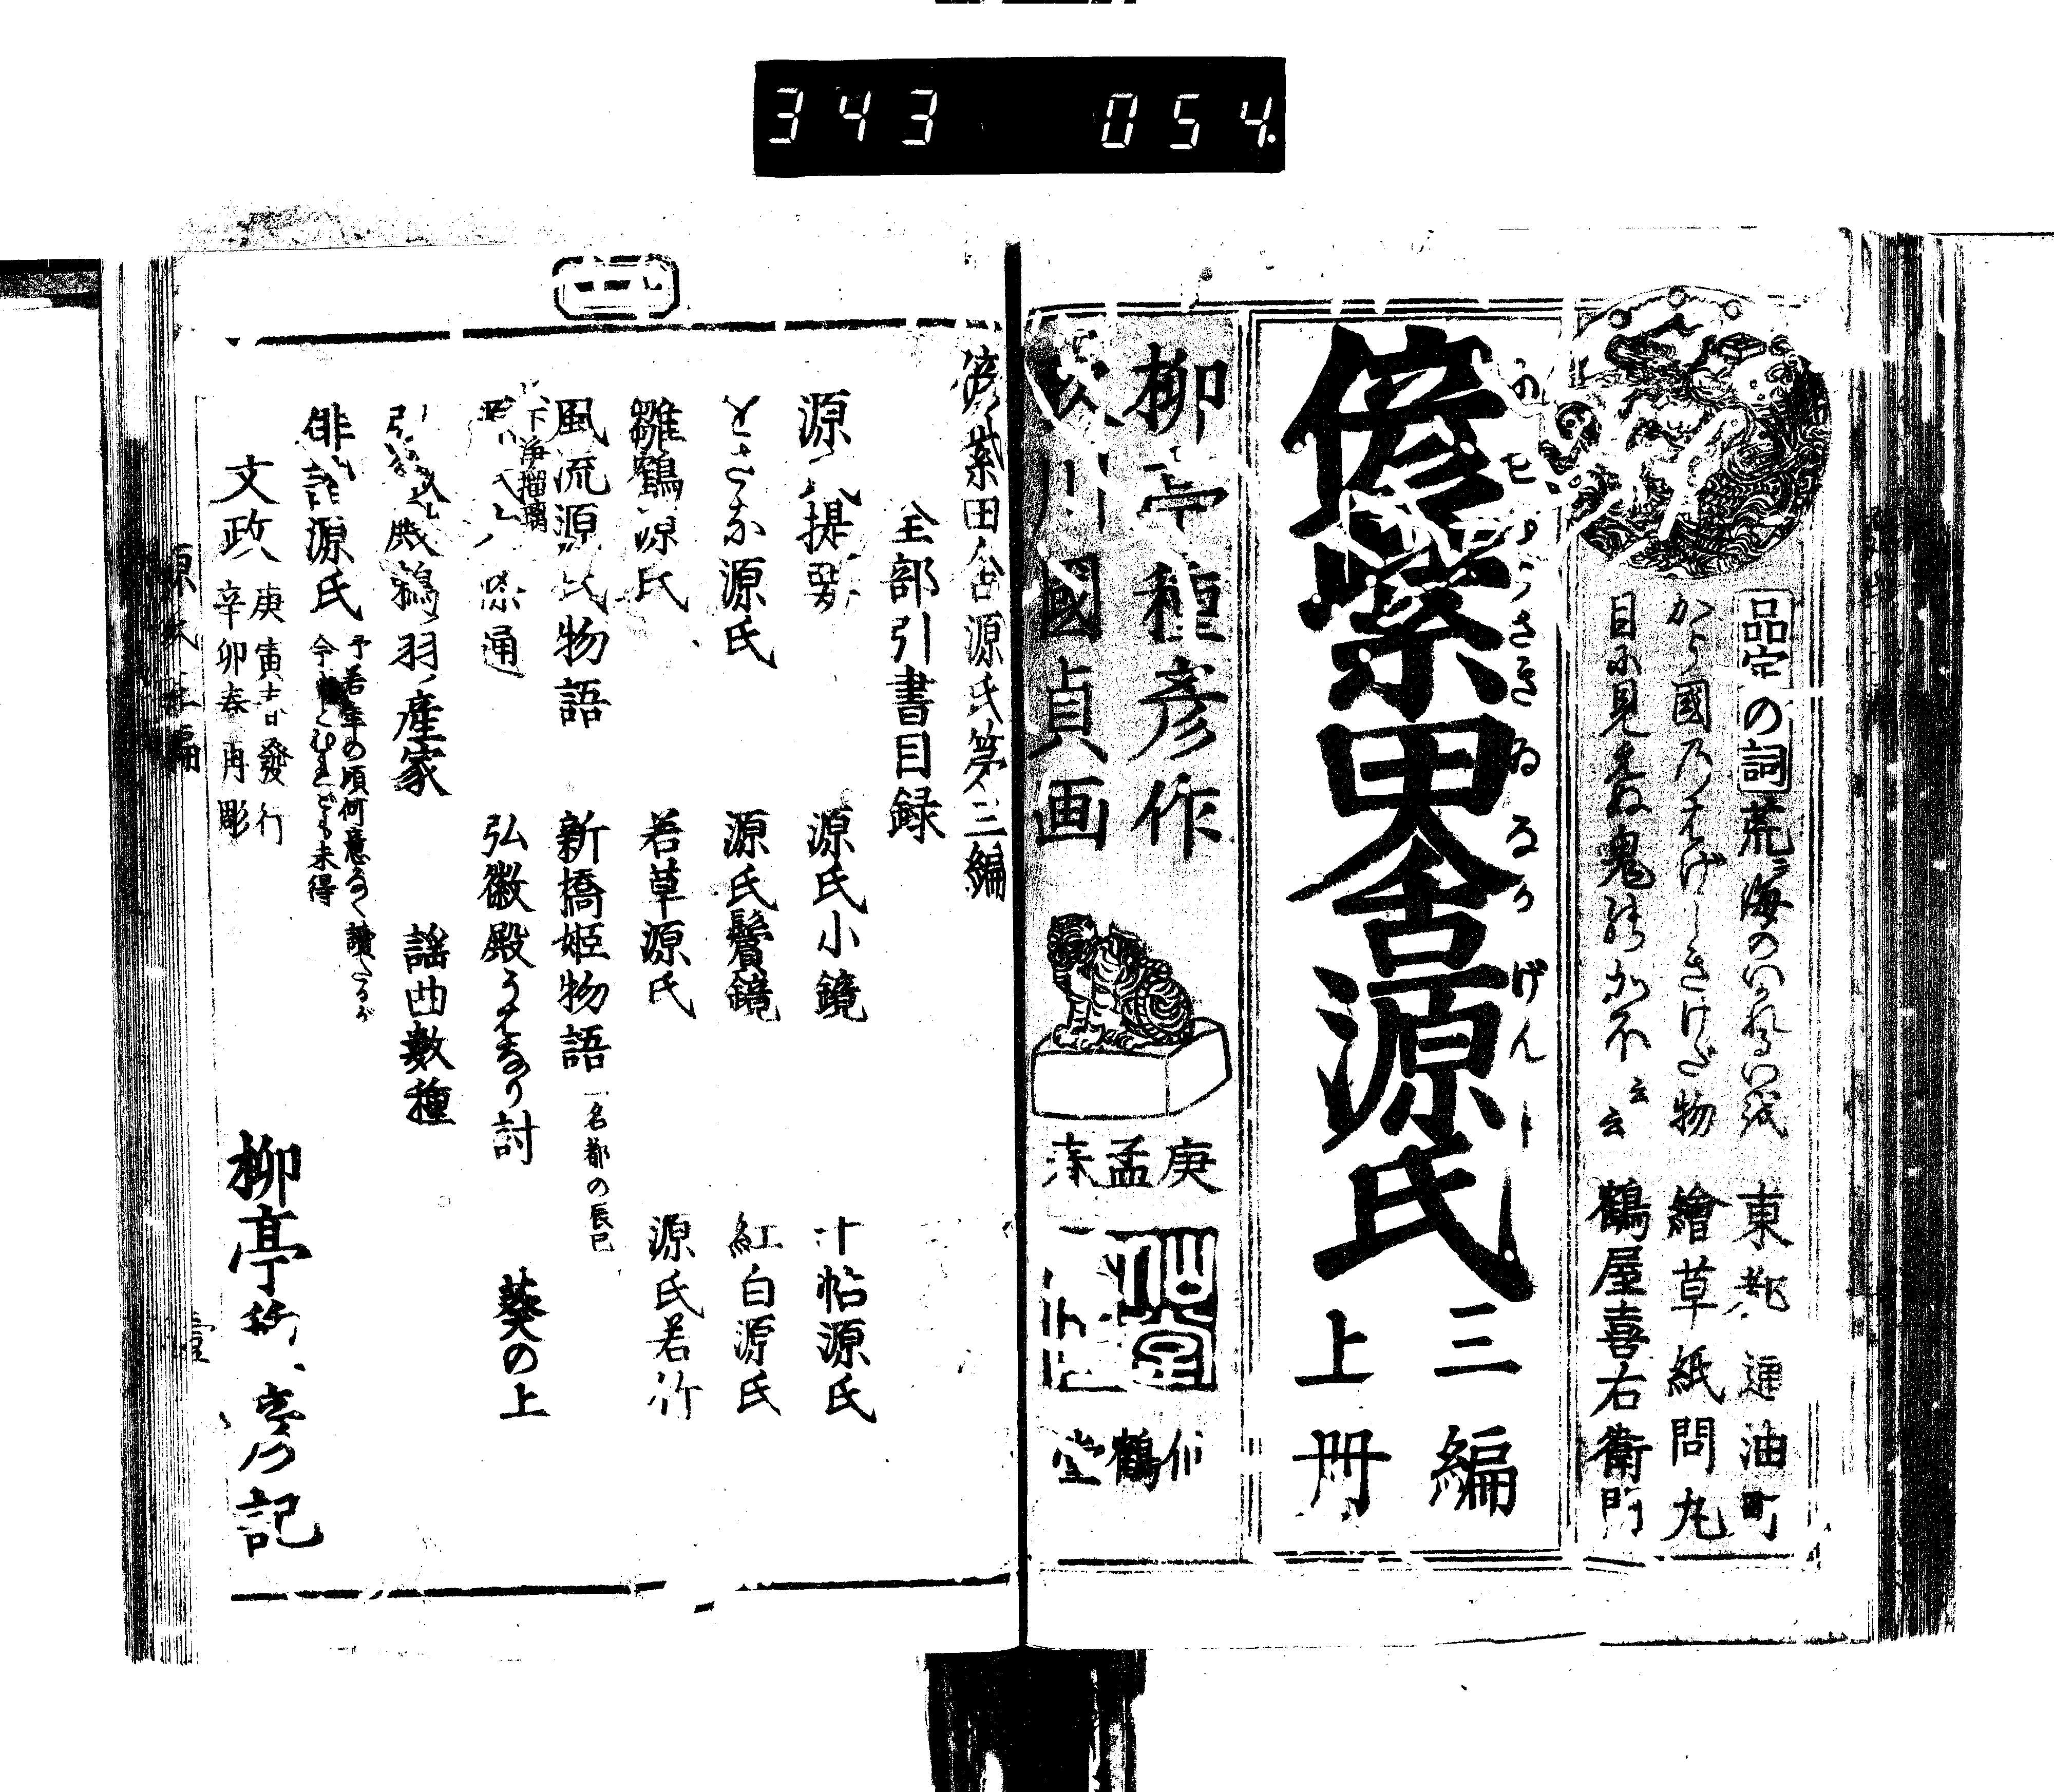 343 054
品定の詞 荒海のいかれるいを
から國のはげしきけだ物
目に見えぬ鬼の
云云
東都通油町
繪草紙問丸
鶴屋喜右衛門
偐紫田舎源氏
にせむらさきゐなかげんじ
三編
上冊
柳亭種彦作
歌川國貞画
庚
孟
春
仙
鶴
堂
偐紫田舎源氏第三編
全部引書目録
源氏提要 源氏小鏡 十帖源氏
をさな源氏 源氏鬢鏡 紅白源氏
雛鶴源氏 若草源氏 源氏若竹
風流源氏物語 新橋姫物語 一名都の辰巳
以下浄瑠璃
源氏六条通 弘徽殿うはなり討 葵の上
弘徽殿鵜羽産家 謡曲数種
俳諧源氏 予若年の頃何意なく讀たるが
今もとむれども未得
文政 庚寅春發行
辛卯春再彫
柳亭種彦記
源氏三編
壹